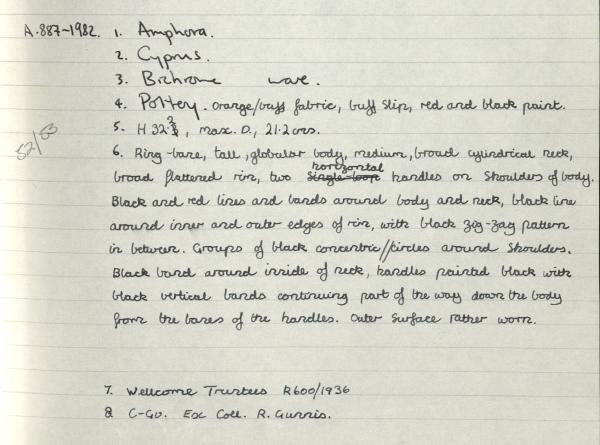 A.887-1982. 1. Amphora.
2. Cyprus.
3. Bichrome ware.
4. Pottery. orange/buff fabric, buff slip, red and black paint.
52/53
5. H 32.3, max. D, 21.2 cms.
6. Ring-base, tall, globular body, medium, broad cylindrical neck,
horizontal
broad flattened rim, two single-loop handles on shoulders of body.
Black and red lines and bands around body and neck, black line
around inner and outer edges of rim, with black zig-zag pattern
in between. Groups of black concentric//circles around shoulders.
Black band around inside of neck, handles painted black with
black vertical bands continuing part of the way down the body
from the bases of the handles. Outer surface rather worn.
7. Wellcome Trustees R600/1936
8. C-Gv. Exc Coll. R. Gunnis.